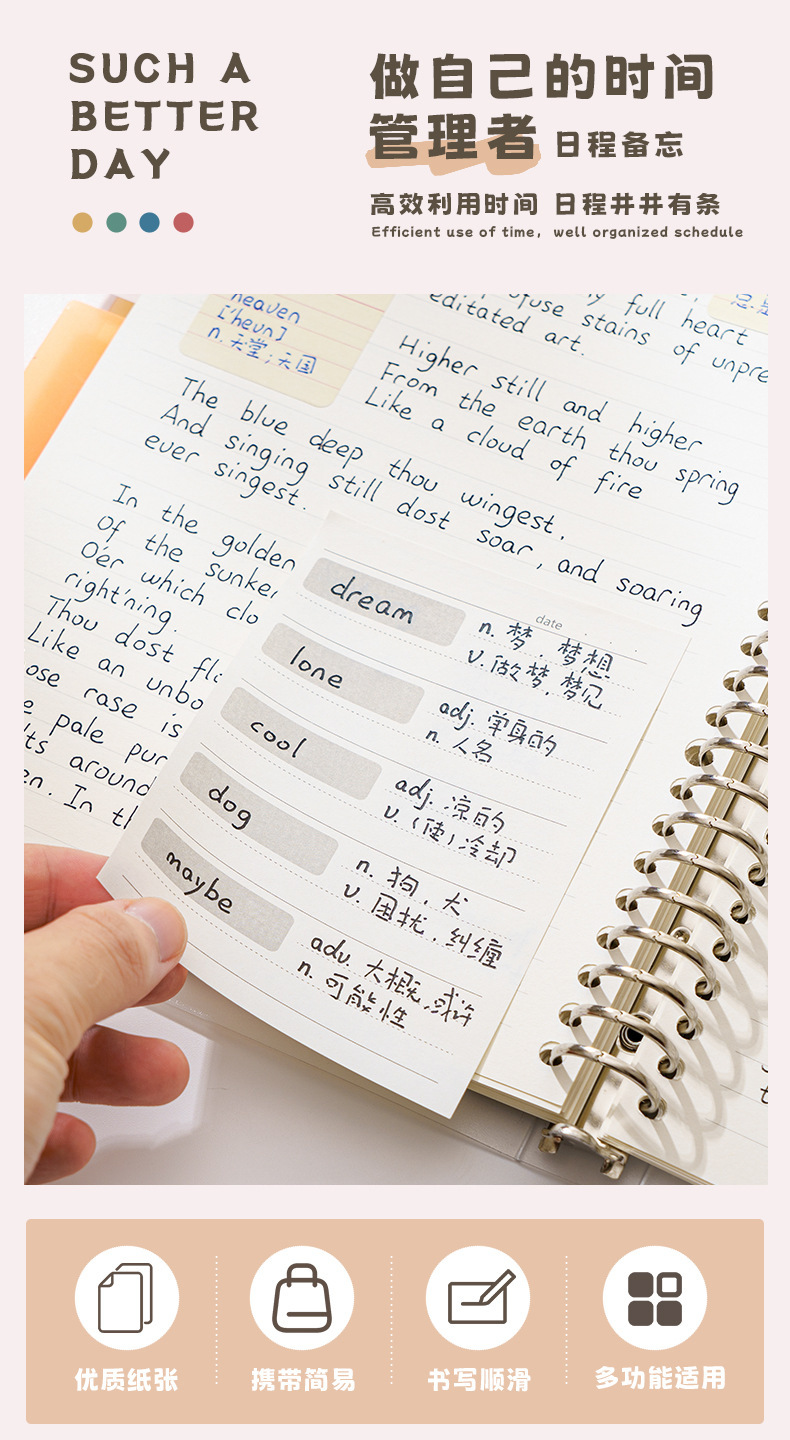 SUCH A
BETTER
DAY
做自己的时间
管理者 日程备忘
高效利用时间 日程井井有条
Efficient use of time, well organized schedule
heaven
n. 天堂；天国
full heart
stains of unpre
editated art.
Higher still and higher
From the earth thou spring
Like a cloud of fire
The blue deep thou wingest,
And singing still dost soar, and soaring
ever singest.
In the golden
Of the sunken
O'er which clo
right'ning.
Thou dost flo
Like an unbo
ose rase is
e pale pur
lts around
en. In th
date
dream
n. 梦，梦想
v. 做梦，梦见
lone
adj. 单身的
n. 人名
cool
adj. 凉的
v.（使）冷却
dog
n. 狗，犬
v. 困扰，纠缠
maybe
adv. 大概，或许
n. 可能性
优质纸张
携带简易
书写顺滑
多功能适用